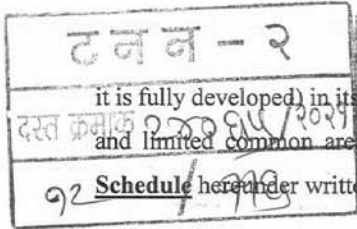 ट न न - २
it is fully developed) in its
दस्त क्रमांक /२०२१
and limited common are
१२ /
Schedule hereunder writte